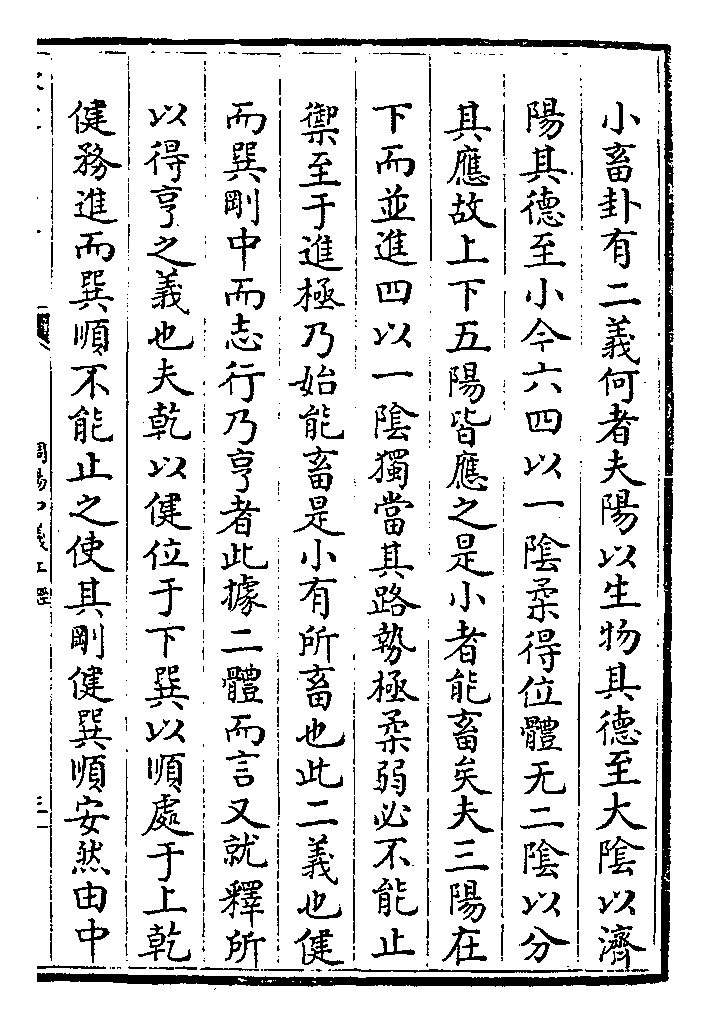 小畜卦有二義何者夫陽以生物其德至大陰以濟
陽其德至小今六四以一陰柔得位體无二陰以分
其應故上下五陽皆應之是小者能畜矣夫三陽在
下而並進四以一陰獨當其路勢極柔弱必不能止
禦至于進極乃始能畜是小有所畜也此二義也健
而巽剛中而志行乃亨者此據二體而言又就釋所
以得亨之義也夫乾以健位于下巽以順處于上乾
健務進而巽順不能止之使其剛健巽順安然由中
周易口義上經